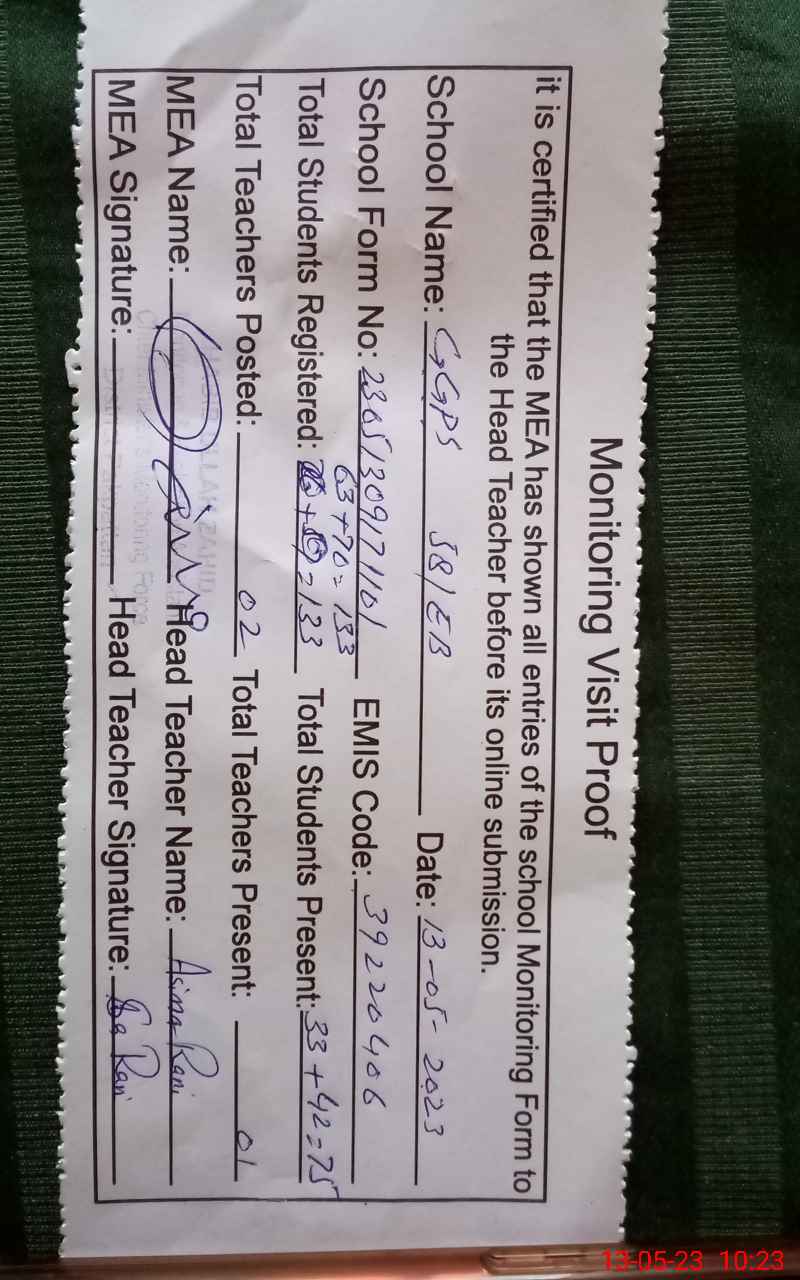 Monitoring Visit Proof
it is certified that the MEA has shown all entries of the school Monitoring Form to
the Head Teacher before its online submission.
School Name: GGPS 58/EB Date: 13-05-2023
School Form No: 23651309171101 EMIS Code: 39220406
63+70=133
Total Students Registered: =133 Total Students Present: 33+42=75
Total Teachers Posted: 02 Total Teachers Present: 01
MEA Name: Head Teacher Name: Asima Rani
MEA Signature: Head Teacher Signature: Rani
13-05-23 10:23